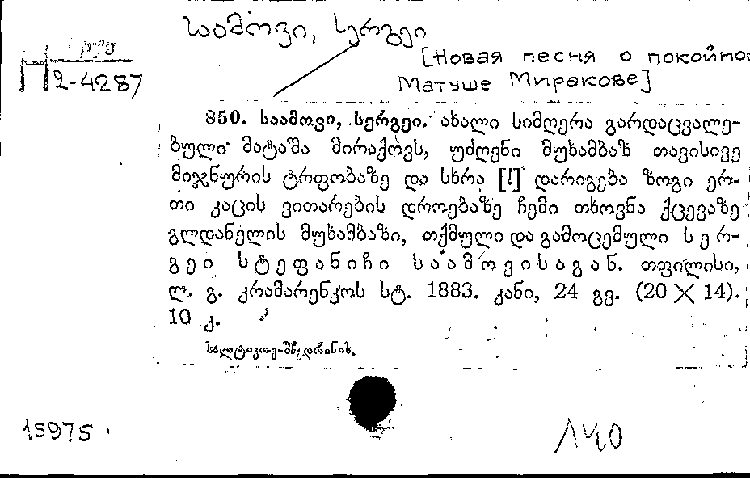 საამოვი, სერგეი
[Новая песня о покойно
Матуше Миракове]
П
2-4287
850. საამოვი, სერგეი. ახალი სიმღერა გარდაცვალე-
ბული მატაშა მირაქოვს, უძღვნი მუხამბაზ თავისივე
მიჯნურის ტრფობაზე და სხრა [!] დარიგება ზოგი ერ-
თი კაცის ვითარების დროებაზე ჩემი თხოვნა ქცევაზე
გლდანელის მუხამბაზი, თქმული და გამოცემული სერ-
გეი სტეფანიჩი საამოვისაგან. თფილისი,
ლ. გ. კრამარენკოს სტ. 1883. კანი, 24 გვ. (20 X 14).
10 კ.
სალტიკოვ-შჩედრინის.
15975
140